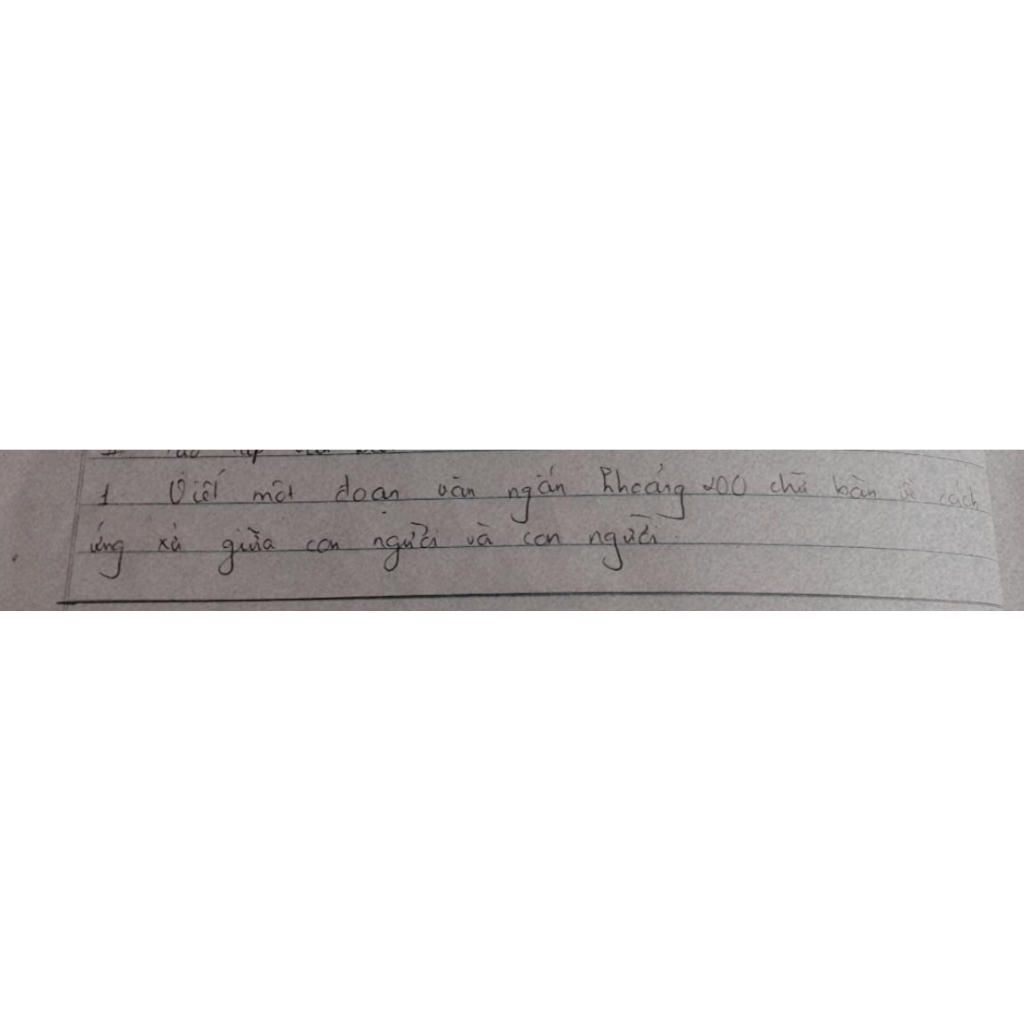 1 Viết một đoạn văn ngắn khoảng 200 chữ bàn về cách
ứng xử giữa con người và con người.